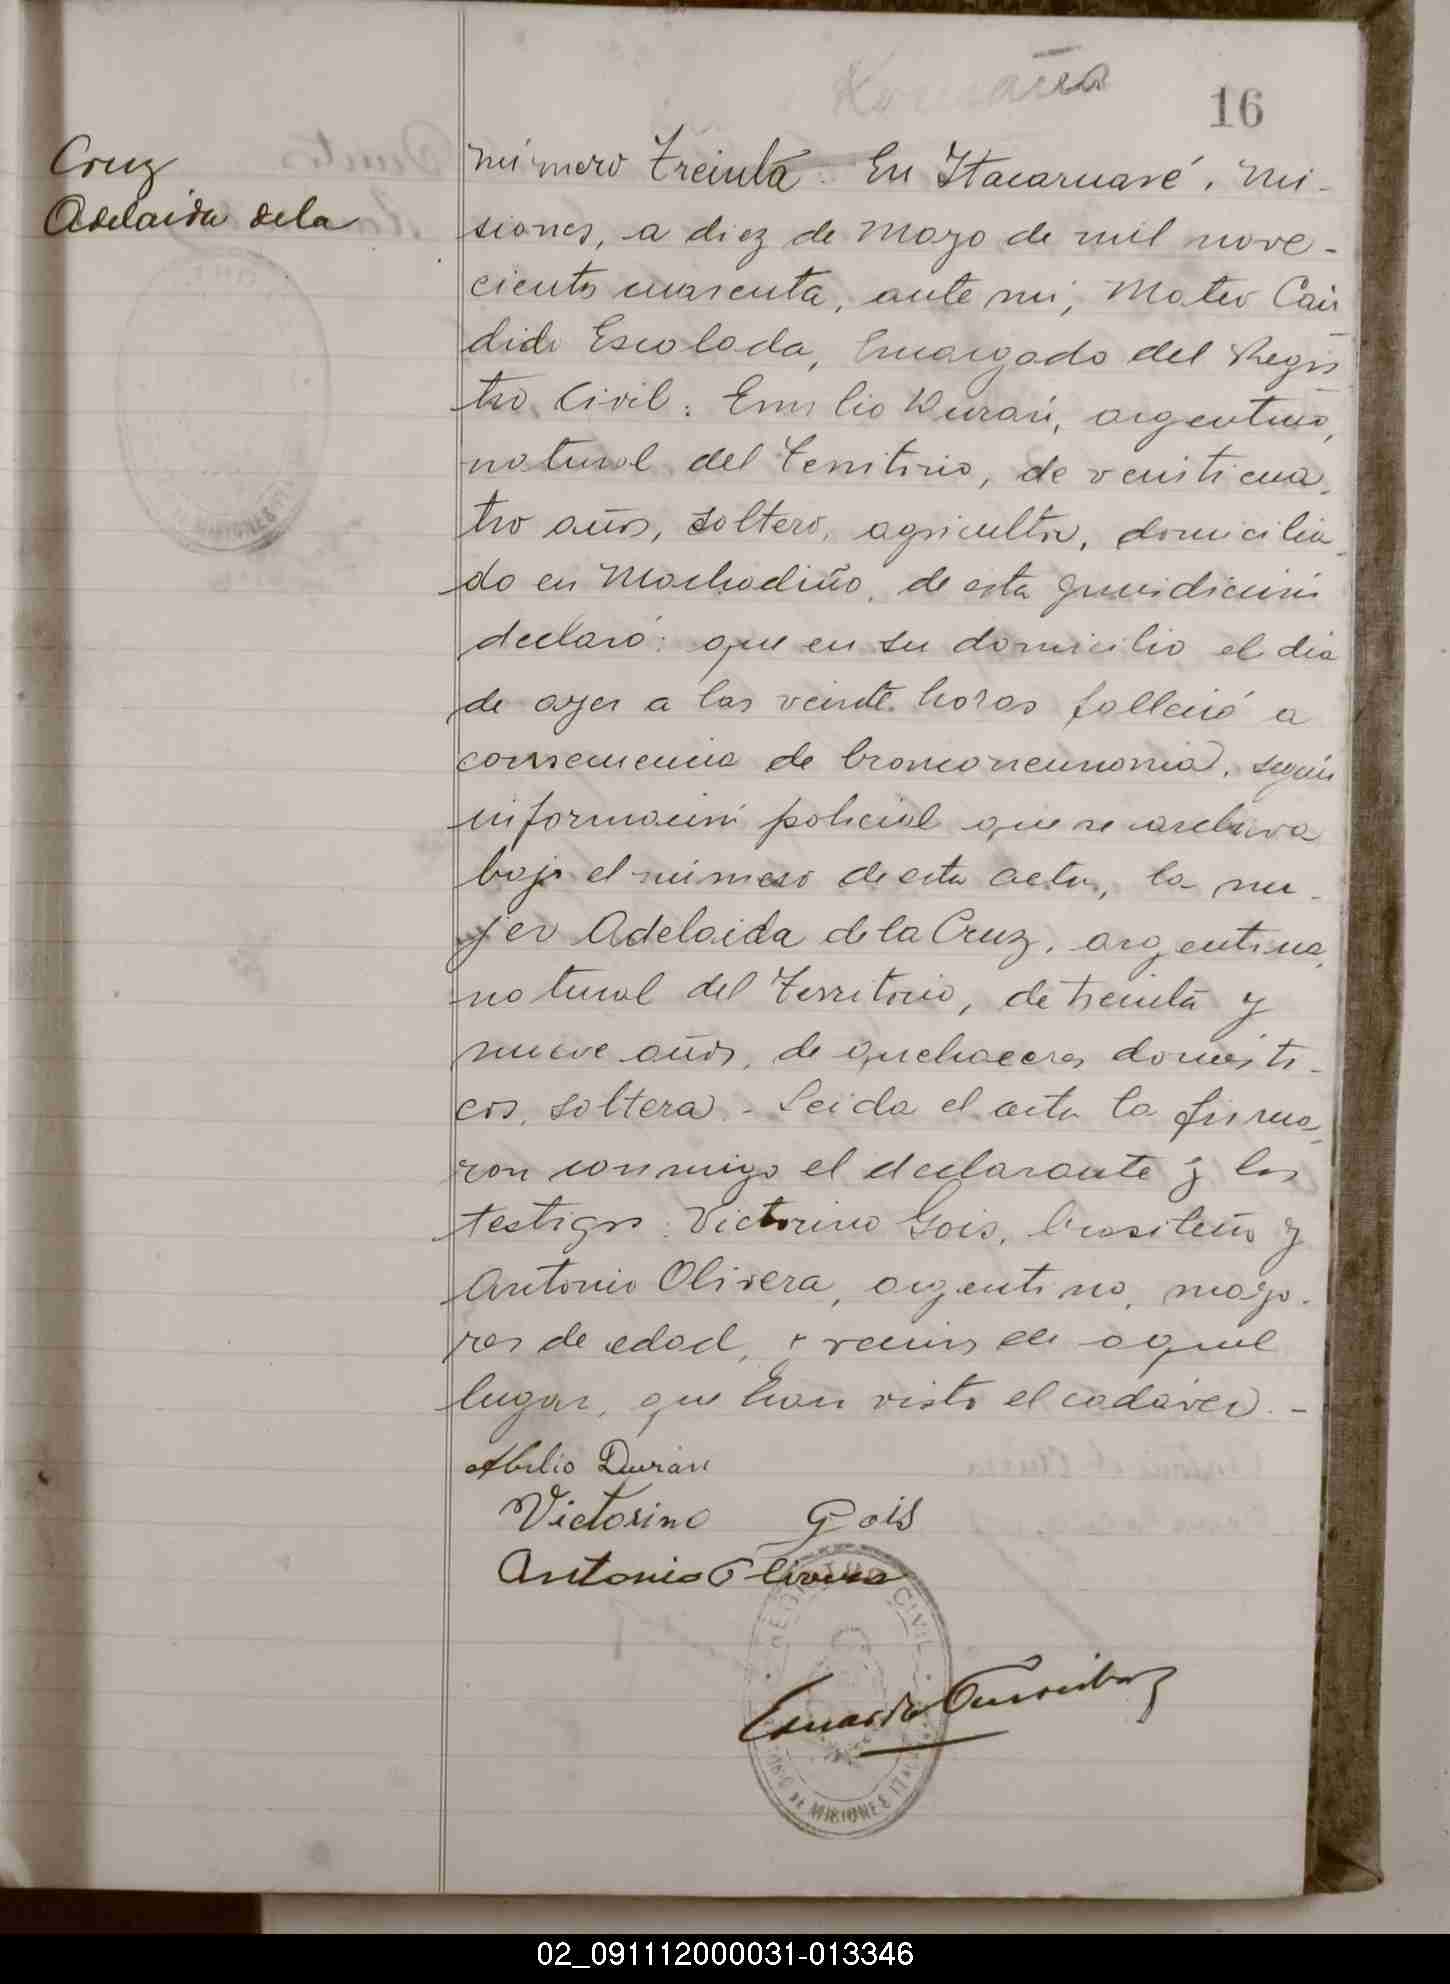 16
Cruz
Adelaida de la
número treinta. En Itacaruaré, Mi-
siones, a diez de Mayo de mil nove-
cientos cuarenta, ante mi, Mateo Cán
dido Escalada, Encargado del Regis
tro Civil: Emilio Durán, argentino,
natural del Territorio, de veinticua-
tro años, soltero, agricultor, domicilia-
do en Machadiño, de esta jurisdicción
declaró: que en su domicilio el dia
de ayer a las veinte horas falleció a
consecuencia de bronconeumonia, según
información policial que se archiva
bajo el número de esta acta, la mu-
jer Adelaida de la Cruz, argentina,
natural del Territorio, de treinta y
nueve años, de quehaceres domésti-
cos, soltera. - Leida el acta la firma-
ron conmigo el declarante y los
testigos: Victorino Gois, brasileño y
Antonio Olivera, argentino, mayo-
res de edad, vecinos de aquel
lugar, que han visto el cadáver. -
Abilio Durán
Victorino Gois
Antonio Olivera
REGISTRO CIVIL
DE MISIONES
02_091112000031-013346